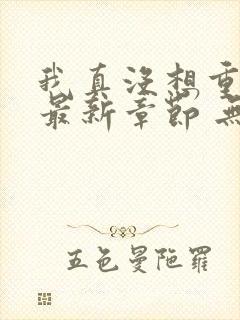 我真没想重
最新章節 無
五色曼陀羅